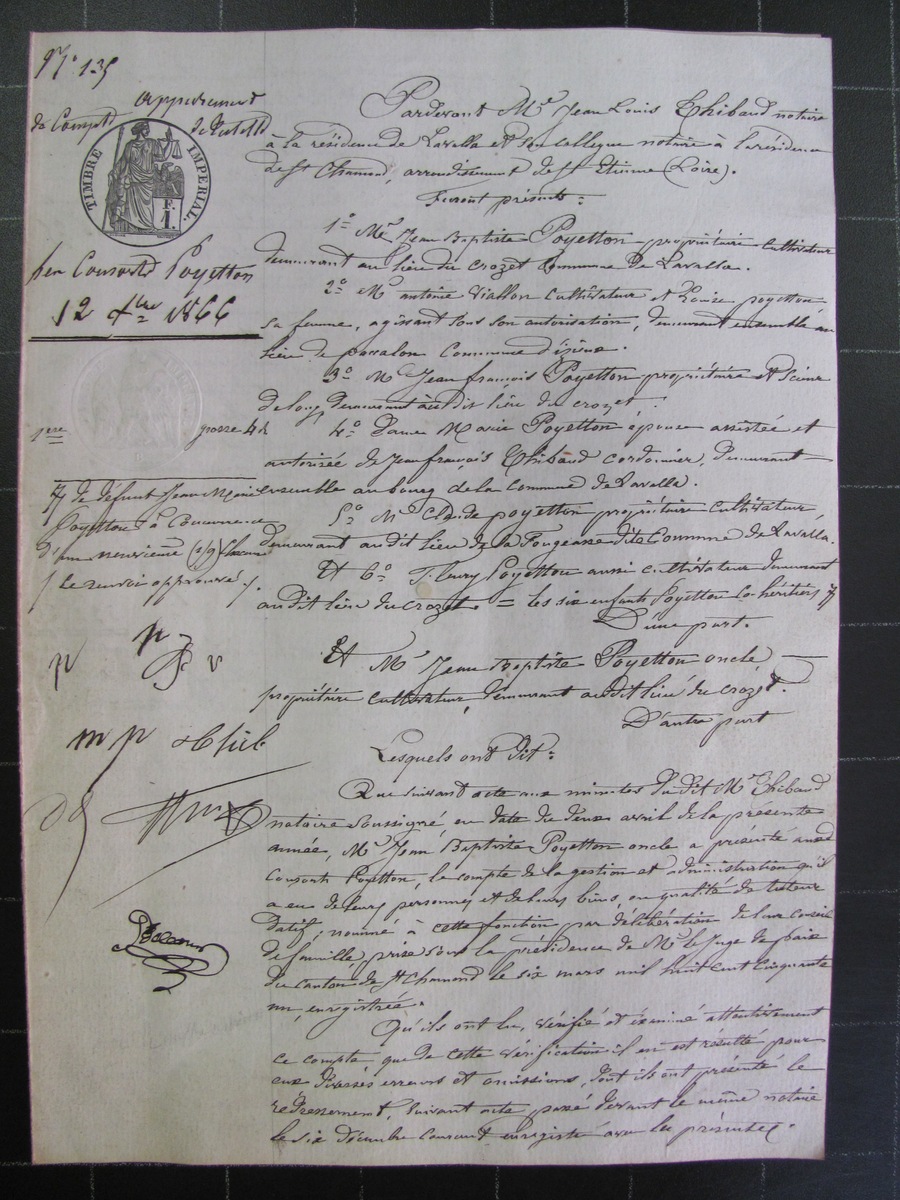 N° 135
Appurement
de Compte de tutelle
TIMBRE IMPERIAL.
1 F.
par Consorts Poyetton
12 Xbre 1866
1ere grosse
Pardevant Me Jean Louis Thibaud notaire
à la résidence de Lavalla et son collègue notaire à la résidence
de St Chamond, arrondissement de St Etienne (Loire).
Furent présents:
1° Mr Jean Baptiste Poyetton propriétaire cultivateur
demeurant au lieu du crozet Commune de Lavalla.
2° Mr antoine Viallon cultivateur et Louise poyetton
sa femme, agissant sous son autorisation, demeurant ensemble au
lieu de Commune d'izieux.
3° Mr Jean françois Poyetton propriétaire et Scieur
de long demeurant audit lieu du crozet.
4° Dame Marie Poyetton épouse assistée et
autorisée de Jean françois Thibaud cordonnier, demeurant
ensemble au bourg de la commune de Lavalla.
5° Mr Claude poyetton propriétaire cultivateur
demeurant audit lieu de la fougeasse dite Commune de Lavalla.
Et 6° fleury Poyetton aussi cultivateur demeurant
audit lieu du crozet = les six enfants Poyetton Co-héritiers
D'une part.
de défunt Jean Marie
Poyetton à Concurrence
d'un neuvième (1/9) chacun
/ le renvoi approuvé. /.
Et Mr Jean Baptiste Poyetton oncle
propriétaire cultivateur, demeurant audit lieu du crozet.
D'autre part
p p v
m p
Lesquels ont dit:
Que suivant acte aux minutes du dit Me Thibaud
notaire soussigné en date du deux avril de la présente
année, Mr Jean Baptiste Poyetton oncle a présenté aux
Consorts Poyetton, le compte de la gestion et administration qu'il
a eu de leurs personnes et de leurs biens, en qualité de tuteur
datif, nommé à cette fonction par délibération de leur conseil
de famille, prise sous la présidence de Mr le Juge de paix
du canton de St Chamond le six mars mil huit cent cinquante
un, enregistrée.
Qu'ils ont lu, vérifié et éxaminé attentivement
ce compte, que de cette vérification il en est résulté pour
eux diverses erreurs et omissions, dont ils ont présenté le
redressement, suivant acte passé devant le même notaire
le six décembre courant enregistré avec les présentes.